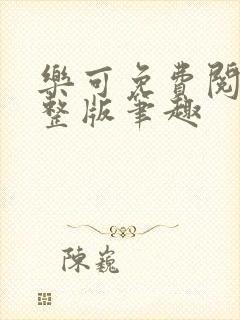 樂可免費閱
整版筆趣
陳巍